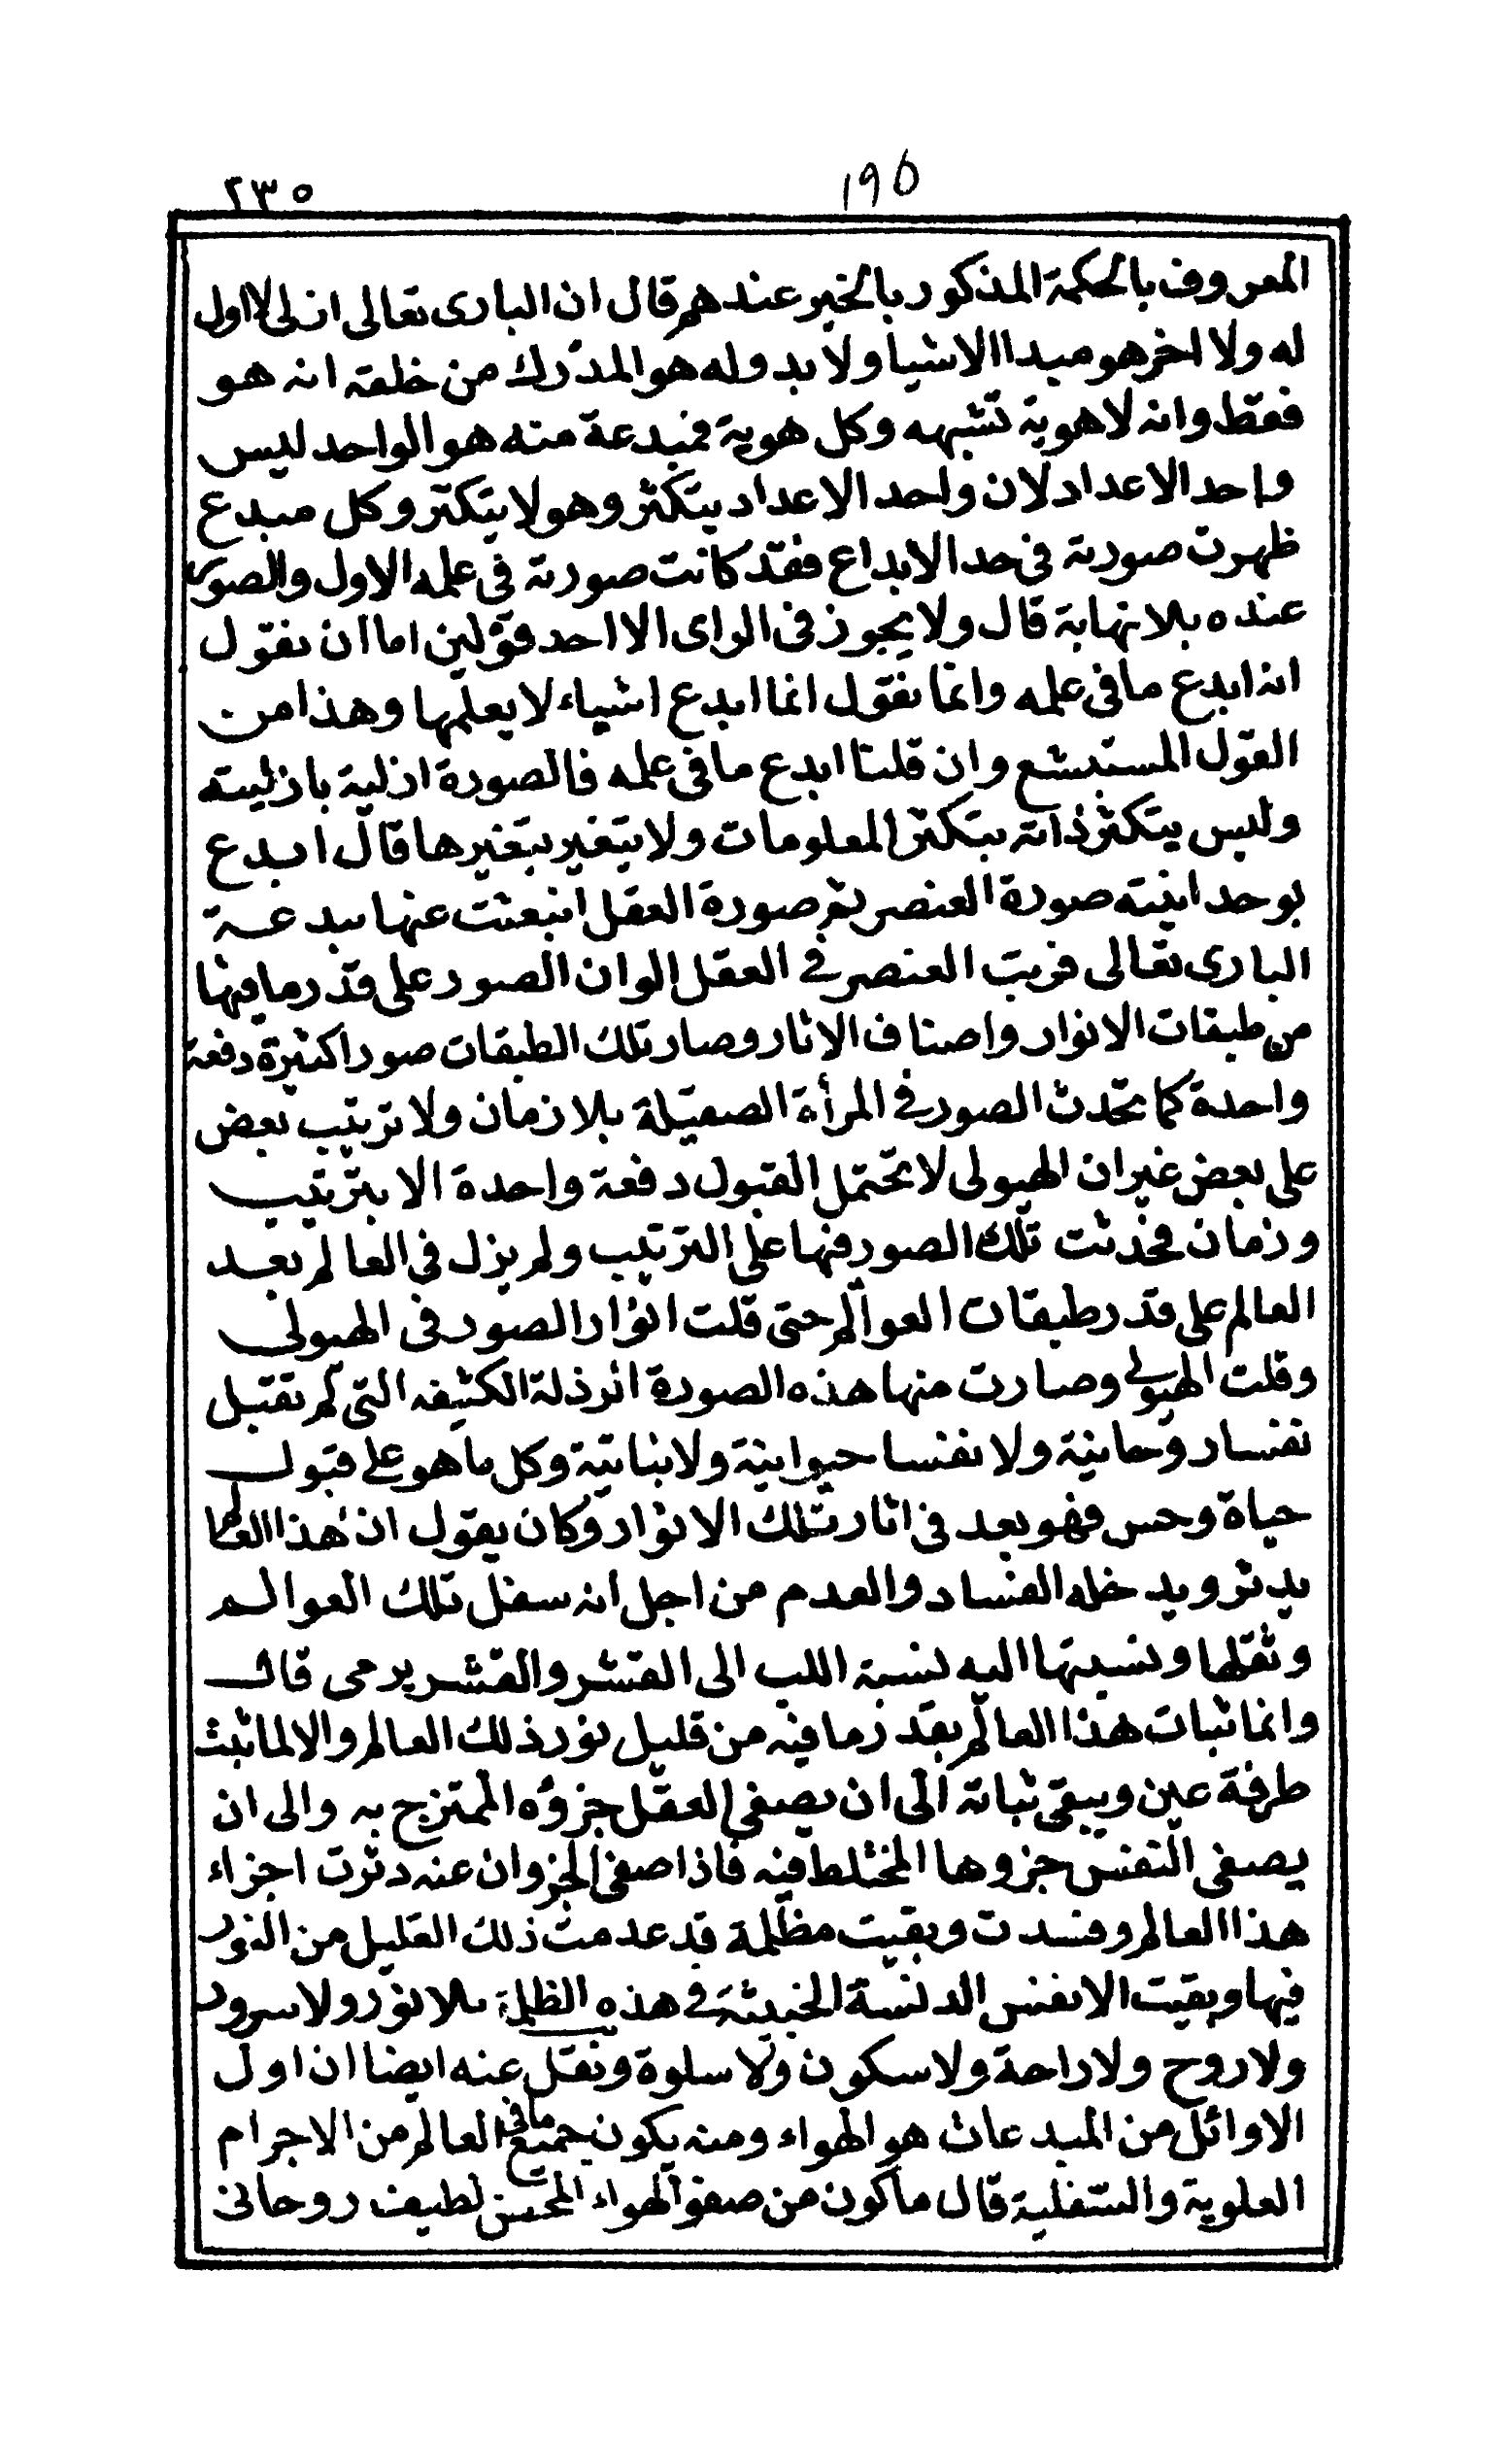 ١٩٥ ٢٣٥
المعروف بالحكمة المذكور بالخير عندهم قال ان البارى تعالى ازلى لا اول
له ولا اخر هو مبدا الاشيا ولا بدو له هو المدرك من خلقه انه هو
فقط وانه لا هوية تشبهه وكل هوية فمبدعة منه هو الواحد ليس
واحد الاعداد لان واحد الاعداد يتكثر وهو لا يتكثر وكل مبدع
ظهرت صورته فى حد الابداع فقد كانت صورته فى علمه الاول والصور
عنده بلا نهاية قال ولا يجوز فى الراى الا احد قولين اما ان نقول
انه ابدع ما فى علمه وانما نقول انما ابدع اشياء لا يعلمها وهذا من
القول المستبشع وان قلنا ابدع ما فى علمه فالصورة ازلية بازليته
وليس يتكثر ذاته بتكثر المعلومات ولا يتغير بتغيرها قال ابدع
بوحدانيته صورة العنصر ثم صورة العقل انبعثت عنها ببدعة
البارى تعالى فرتب العنصر فى العقل الوان الصور على قدر ما فيها
من طبقات الانوار واصناف الاثار وصار تلك الطبقات صورا كثيرة دفعة
واحدة كما تحدث الصور فى المرأة الصقيلة بلا زمان ولا ترتيب بعض
على بعض غير ان الهيولى لا تحتمل القبول دفعة واحدة الا بترتيب
وزمان فحدثت تلك الصور فيها على الترتيب ولم يزل فى العالم بعد
العالم على قدر طبقات العوالم حتى قلت انوار الصور فى الهيولى
وقلت الهيولى وصارت منها هذه الصورة الرذلة الكثيفه التى لم تقبل
نفسا روحانية ولا نفسا حيوانية ولا نباتية وكل ما هو على قبول
حياة وحس فهو بعد فى اثار تلك الانوار وكان يقول ان هذا العالم
يدثر ويدخله الفساد والعدم من اجل انه سفل تلك العوالم
وثقلها ونسبتها اليه نسبة اللب الى القشر والقشر يرمى قال
وانما ثبات هذا العالم بقدر ما فيه من قليل نور ذلك العالم والا لما ثبت
طرفة عين ويبقى ثباته الى ان يصفى العقل جزؤه الممتزج به والى ان
يصفى النفس جزوها المختلط فيه فاذا صفى الجزوان عنه دثرت اجزاء
هذا العالم وفسدت وبقيت مظلمة قد عدمت ذلك القليل من النور
فيها وبقيت الانفس الدنسة الخبيثة فى هذه الظلمة بلا نور ولا سرور
ولا روح ولا راحة ولا سكون ولا سلوة ونقل عنه ايضا ان اول
الاوائل من المبدعات هو الهواء ومنه يكون جميع ما فى العالم من الاجرام
العلوية والسفلية قال ما كون من صفو الهواء المحض لطيف روحانى